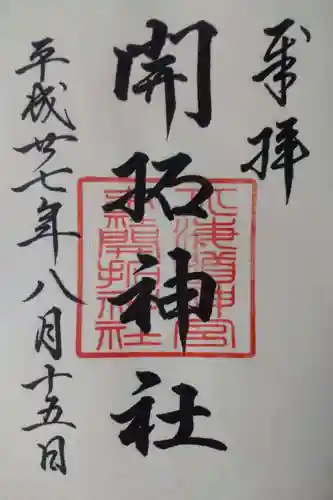 奉拝
開拓神社
平成廿七年八月十五日
北海道神宮
末社開拓神社